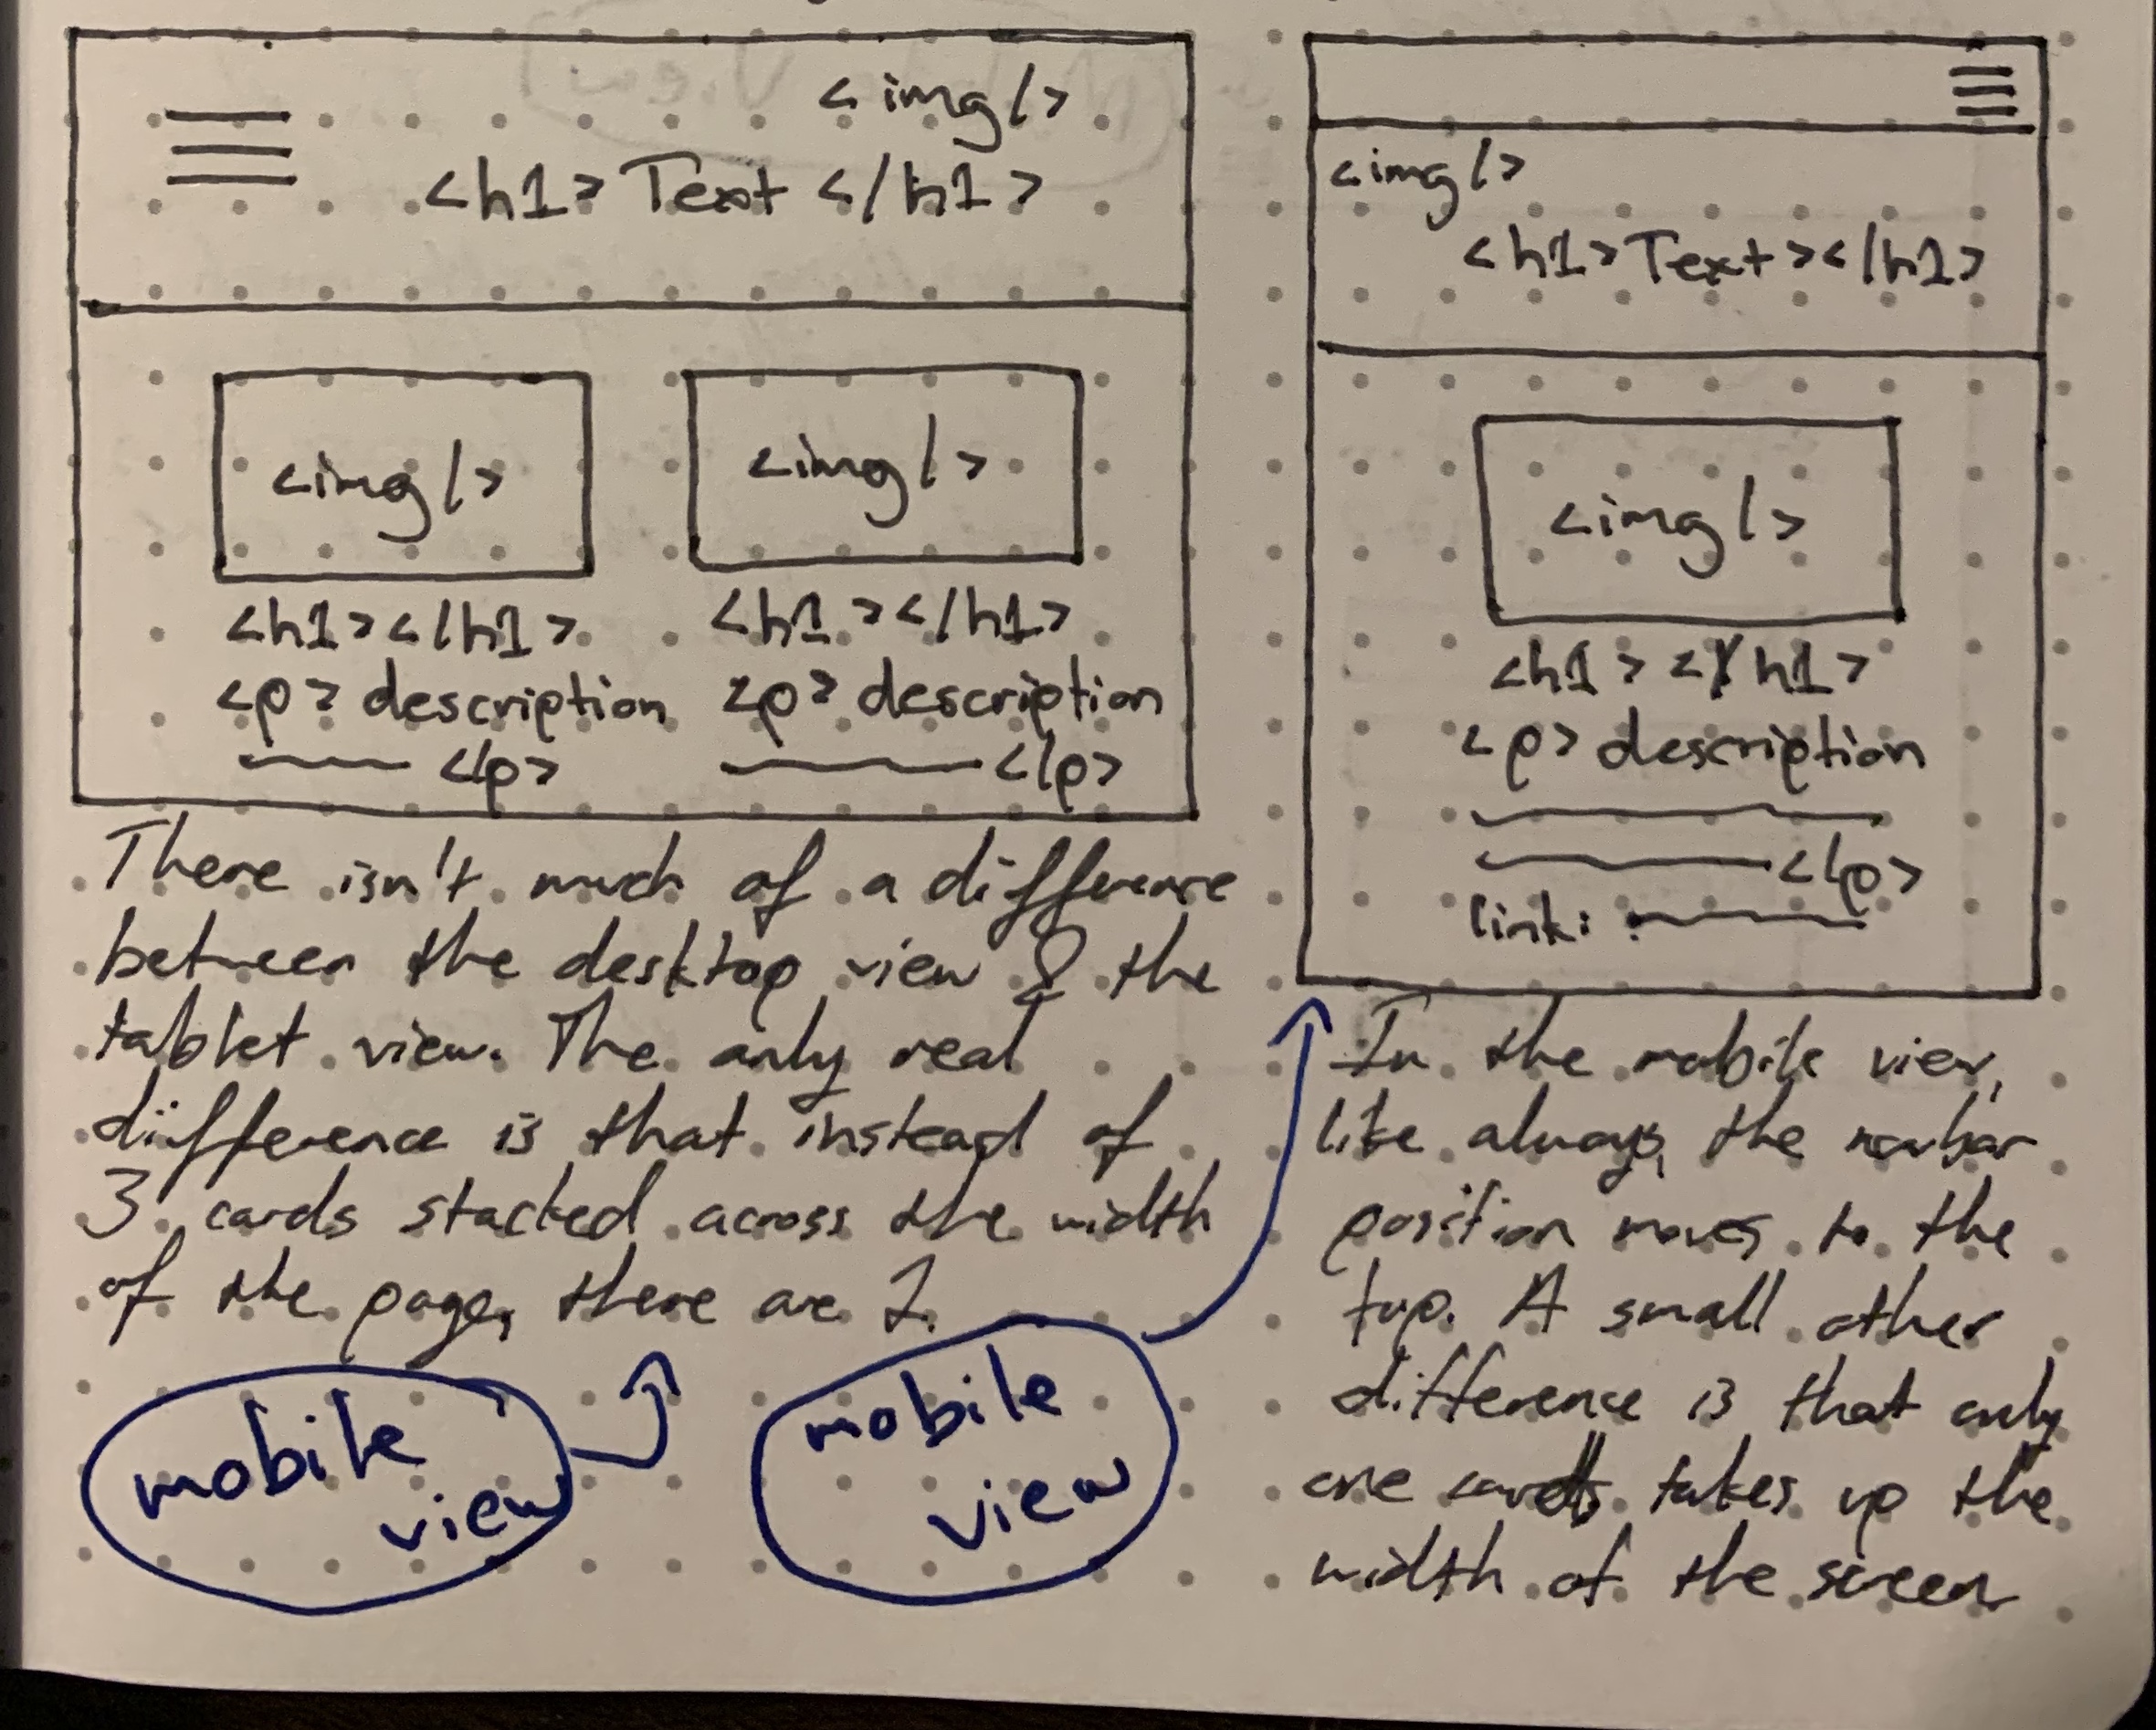 <img/>
<h1>Text</h1>
<img/>
<img/>
<h1></h1>
<h1></h1>
<p> description
<p> description
</p>
</p>
There isn't much of a difference
between the desktop view & the
tablet view. The only real
difference is that instead of
3 cards stacked across the width
of the page, there are 2.
mobile
view
mobile
view
<img/>
<h1>Text></h1>
<img/>
<h1></h1>
<p> description
</p>
link:
In the mobile view,
like always, the navbar
position moves to the
top. A small other
difference is that only
one card takes up the
width of the screen